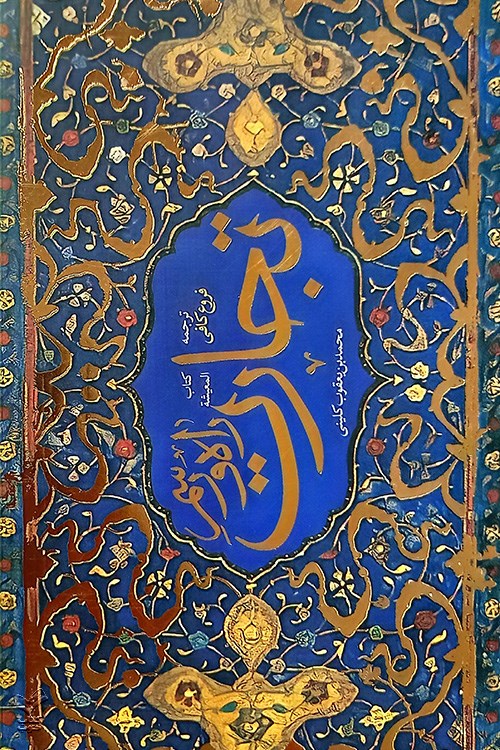 ترجمه
فروع کافی
کتاب
المعیشة
راه و رسم
تجارت
محمد بن یعقوب کلینی